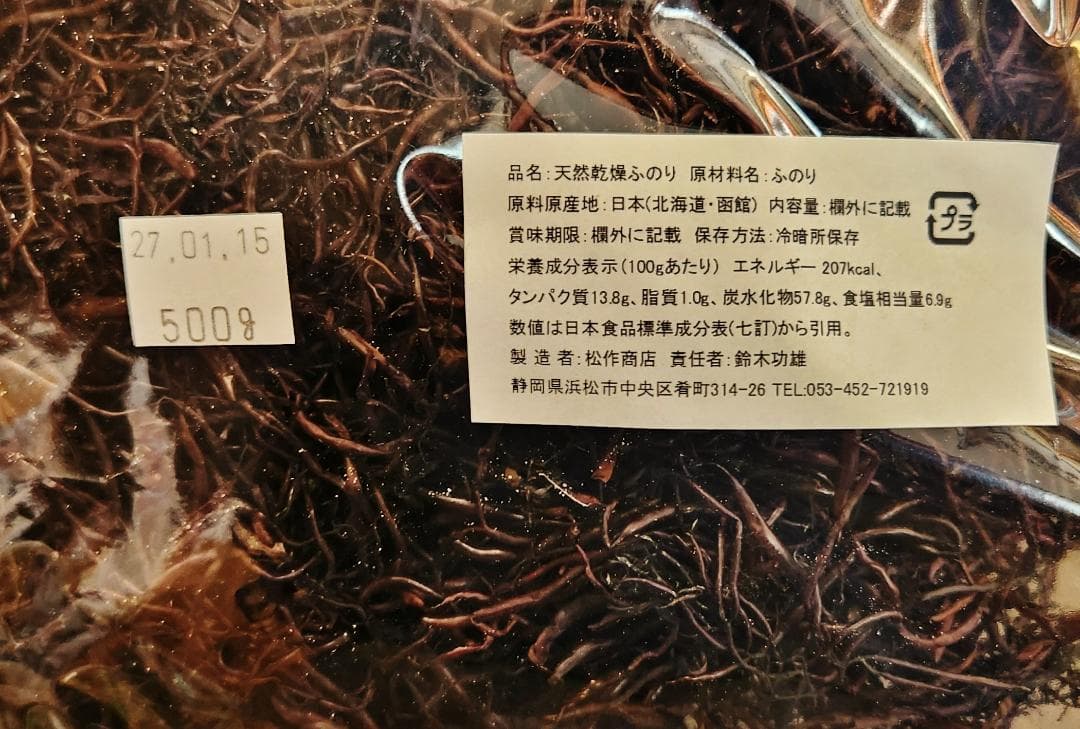 27.01.15
500g
品名:天然乾燥ふのり 原材料名:ふのり
原料原産地:日本(北海道・函館) 内容量:欄外に記載
プラ
賞味期限:欄外に記載 保存方法:冷暗所保存
栄養成分表示(100gあたり) エネルギー 207kcal、
タンパク質13.8g、脂質1.0g、炭水化物57.8g、食塩相当量6.9g
数値は日本食品標準成分表(七訂)から引用。
製造者:松作商店 責任者:鈴木功雄
静岡県浜松市中央区肴町314-26 TEL:053-452-721919